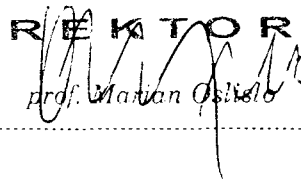 REKTOR
prof. Marian Oslislo